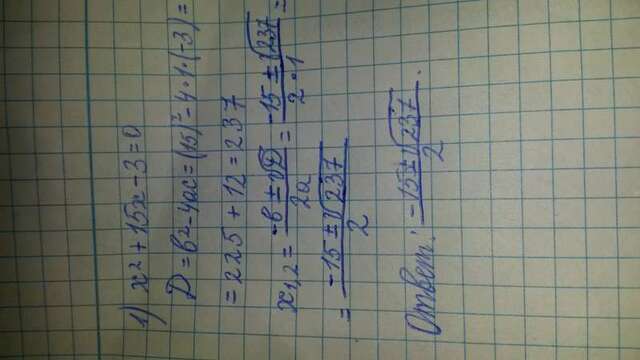 1) x² + 15x - 3 = 0
D = в² - 4ac = (15)² - 4 · 1 · (-3) =
= 225 + 12 = 237
x₁,₂ = (-в ± √D) / 2a = (-15 ± √237) / 2 · 1 =
= (-15 ± √237) / 2
Ответ: (-15 ± √237) / 2.